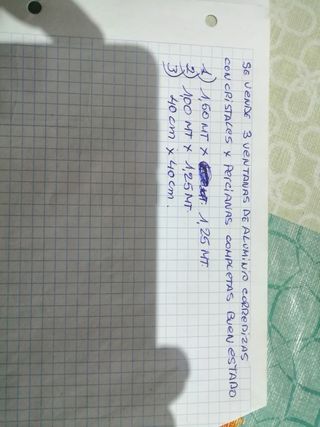 SE VENDE 3 VENTANAS DE ALUMINIO CORREDIZAS
CON CRISTALES Y PERCIANAS COMPLETAS BUEN ESTADO
1) 1,60 MT x 1,25 MT
2) 1,00 MT x 1,25 MT
3) 40 cm x 40 cm.